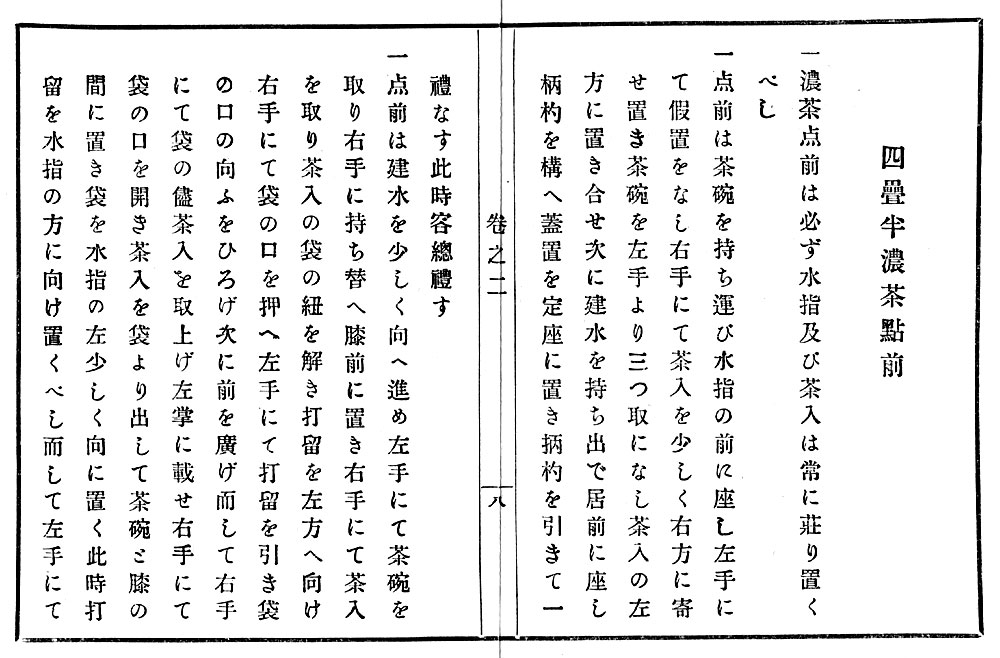 四疊半濃茶點前
一濃茶点前は必ず水指及び茶入は常に莊り置く
べし
一点前は茶碗を持ち運び水指の前に座し左手に
て假置をなし右手にて茶入を少しく右方に寄
せ置き茶碗を左手より三つ取になし茶入の左
方に置き合せ次に建水を持ち出で居前に座し
柄杓を構へ蓋置を定座に置き柄杓を引きて一
卷之二
八
禮なす此時客總禮す
一点前は建水を少しく向へ進め左手にて茶碗を
取り右手に持ち替へ膝前に置き右手にて茶入
を取り茶入の袋の紐を解き打留を左方へ向け
右手にて袋の口を押へ左手にて打留を引き袋
の口の向ふをひろげ次に前を廣げ而して右手
にて袋の儘茶入を取上げ左掌に載せ右手にて
袋の口を開き茶入を袋より出して茶碗と膝の
間に置き袋を水指の左少しく向に置く此時打
留を水指の方に向け置くべし而して左手にて